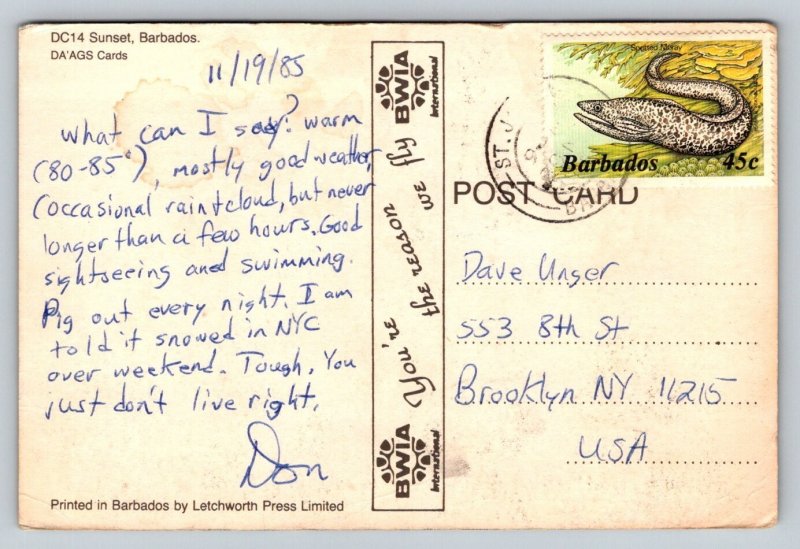 DC14 Sunset, Barbados.
DA'AGS Cards
11/19/85
What can I say? warm
(80-85°), mostly good weather,
(occasional rain+cloud, but never
longer than a few hours. Good
sightseeing and swimming.
Pig out every night. I am
told it snowed in NYC
over weekend. Tough. You
just don't live right.
Don
Printed in Barbados by Letchworth Press Limited
BWIA
International
You're the reason we fly
BWIA
International
Spotted Moray
Barbados 45c
ST. J
POST CARD
Dave Unger
553 8th St
Brooklyn NY 11215
USA